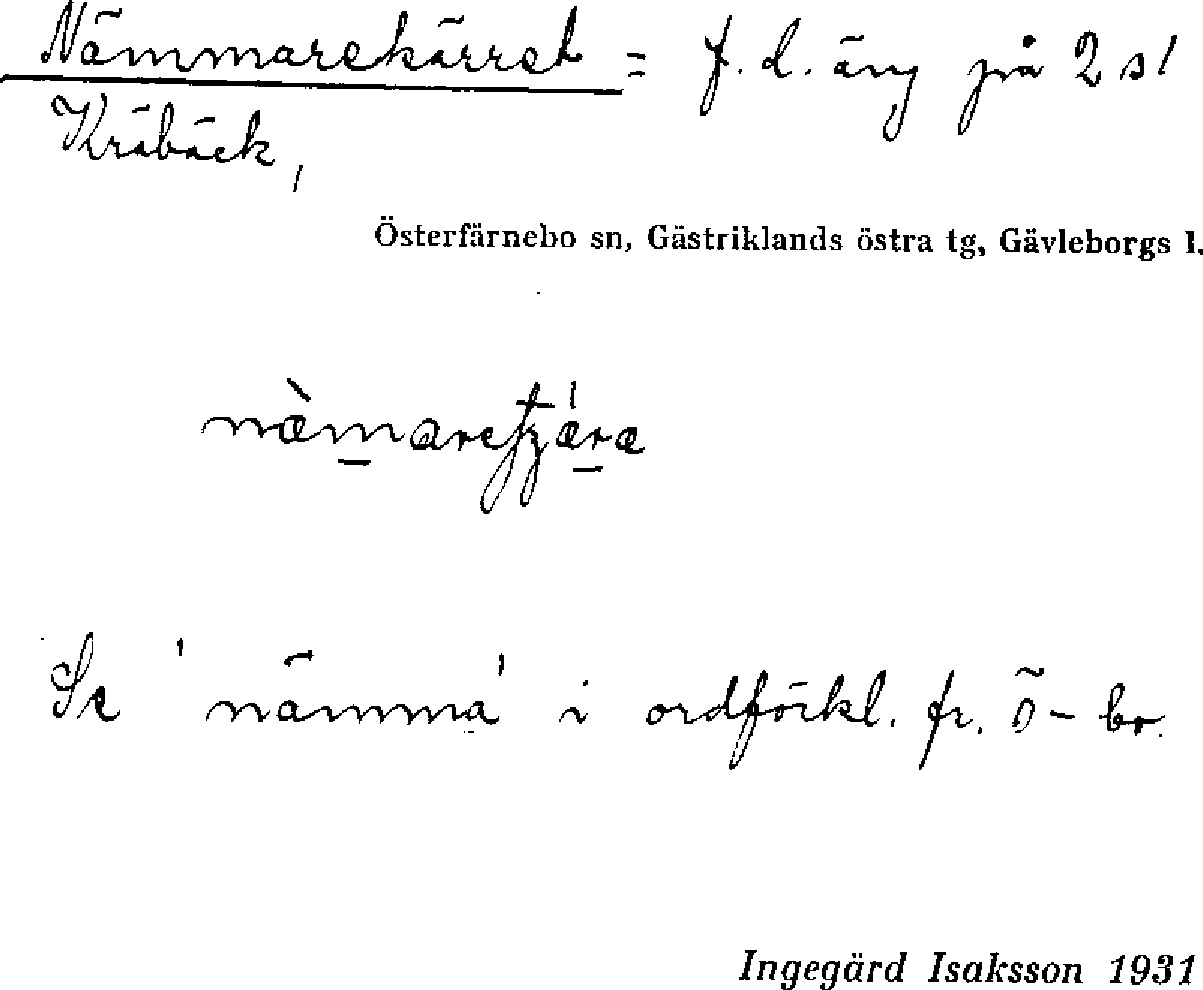 Nämmarekärret = f.d. äng på 2 s/
Kräbäck,
Österfärnebo sn, Gästriklands östra tg, Gävleborgs l.
Se 'nämma' i ordförkl. fr. Ö-bo.
Ingegärd Isaksson 1931